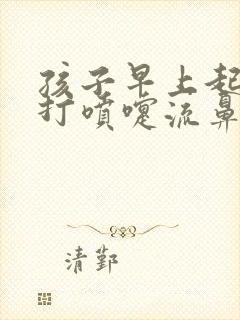 孩子早上起
打喷嚏流鼻
清鄞